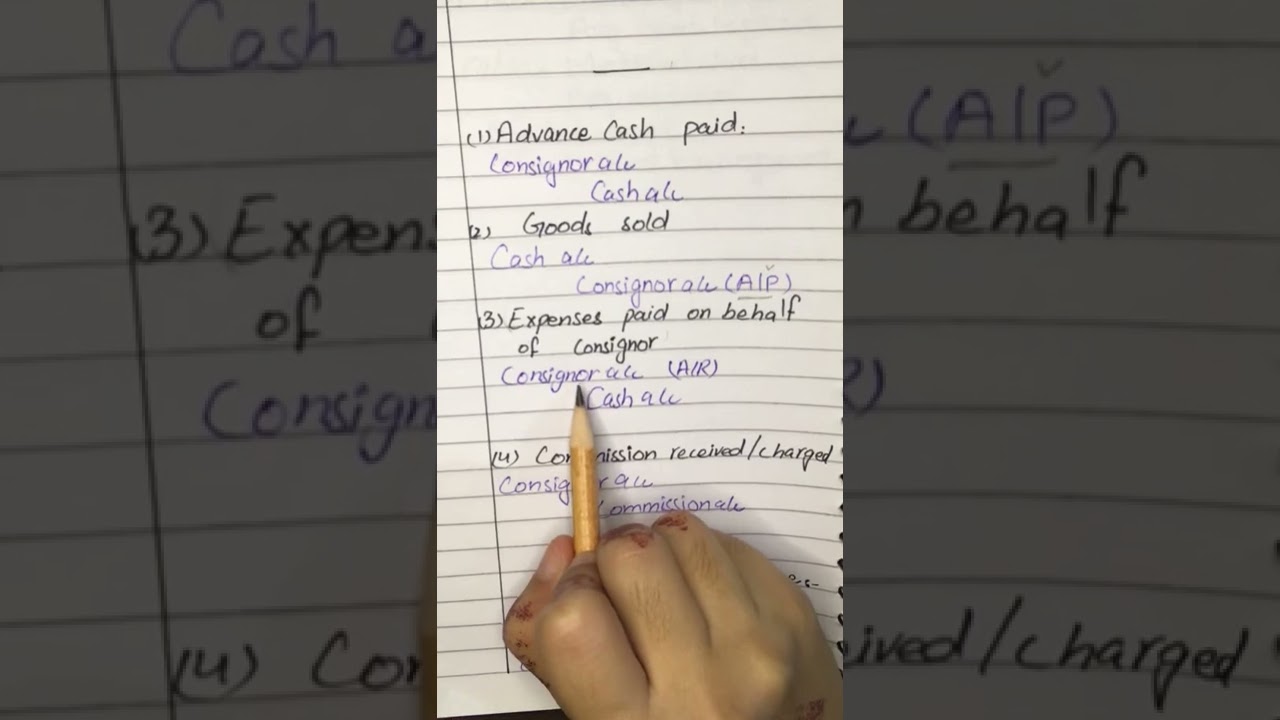 (1) Advance Cash paid:
Consignor a/c
Cash a/c
(2) Goods sold
Cash a/c
Consignor a/c (A/P)
(3) Expenses paid on behalf
of Consignor
Consignor a/c (A/R)
Cash a/c
(4) Commission received/charged
Consignor a/c
Commission a/c